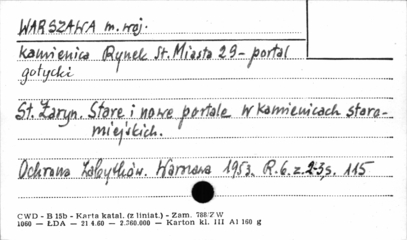 WARSZAWA m. woj.
Kamienica Rynek St. Miasta 29 - portal
gotycki
St. Żaryn. Stare i nowe portale w kamienicach staro-
miejskich.
Ochrona Zabytków. Warszawa 1953. R. 6. z. 2-3, s. 115
CWD - B 15b - Karta katal. (z liniat.) - Zam. 788/Z W
1060 — ŁDA — 21 4.60 — 2.360.000 — Karton kl. III A1 160 g